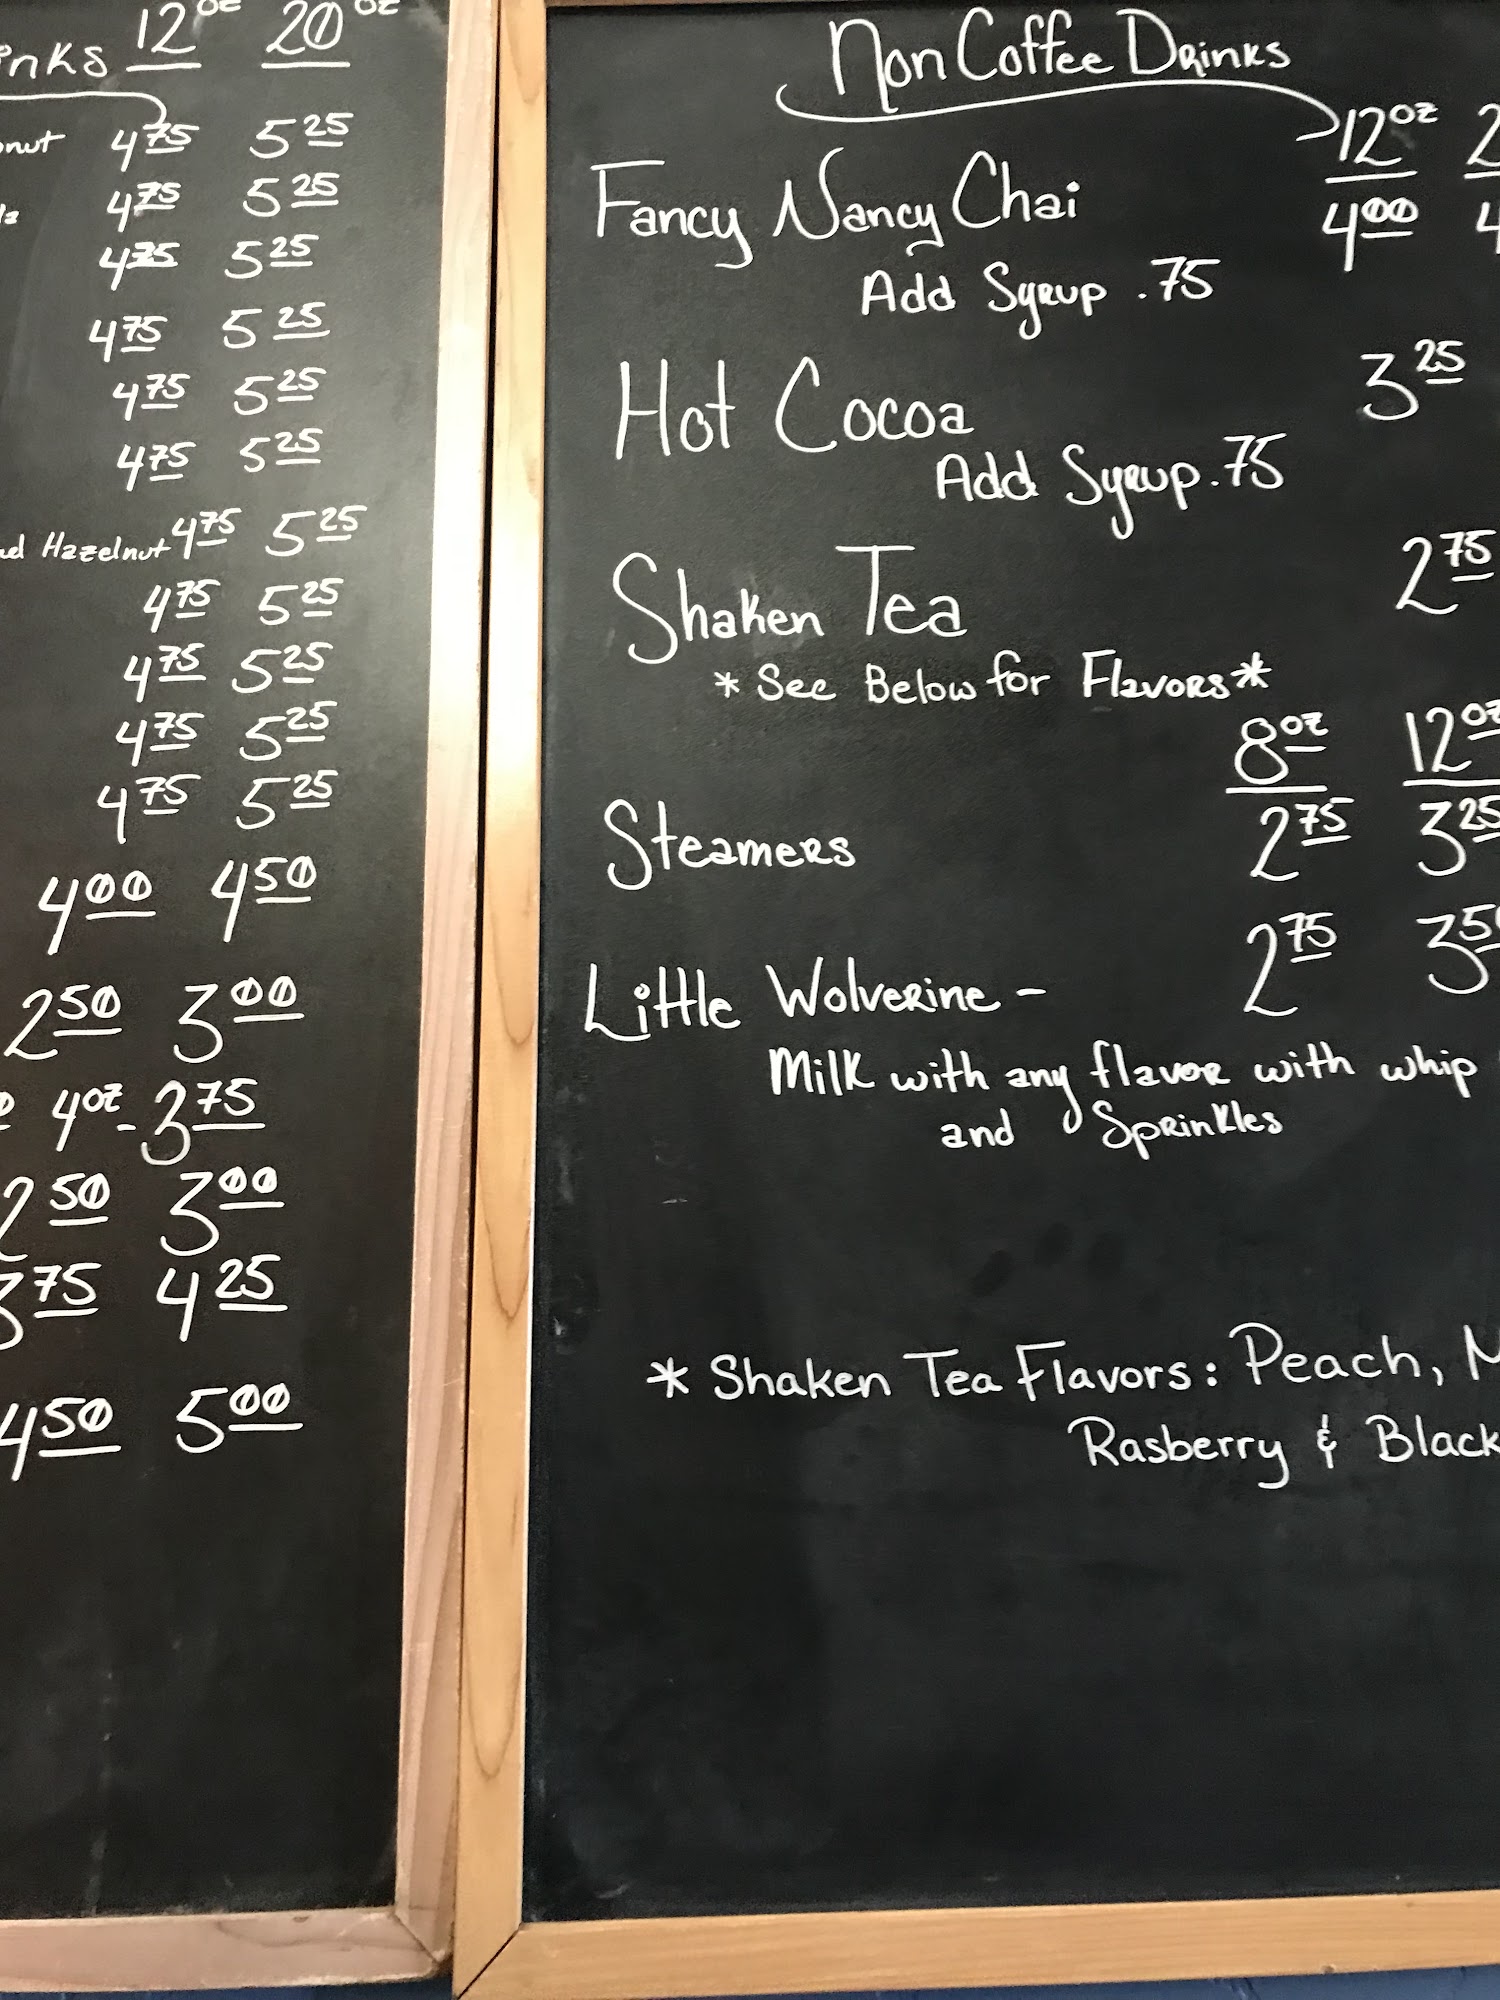 12oz 20oz
4.75 5.25
4.75 5.25
4.75 5.25
4.75 5.25
4.75 5.25
4.75 5.25
Hazelnut 4.75 5.25
4.75 5.25
4.75 5.25
4.75 5.25
4.75 5.25
4.00 4.50
2.50 3.00
4oz - 3.75
2.50 3.00
3.75 4.25
4.50 5.00
Non Coffee Drinks
12oz
Fancy Nancy Chai 4.00
Add Syrup .75
Hot Cocoa 3.25
Add Syrup .75
Shaken Tea 2.75
*See Below for Flavors*
8oz 12oz
Steamers 2.75 3.25
Little Wolverine - 2.75 3.50
Milk with any flavor with whip
and Sprinkles
* Shaken Tea Flavors: Peach,
Rasberry & Black